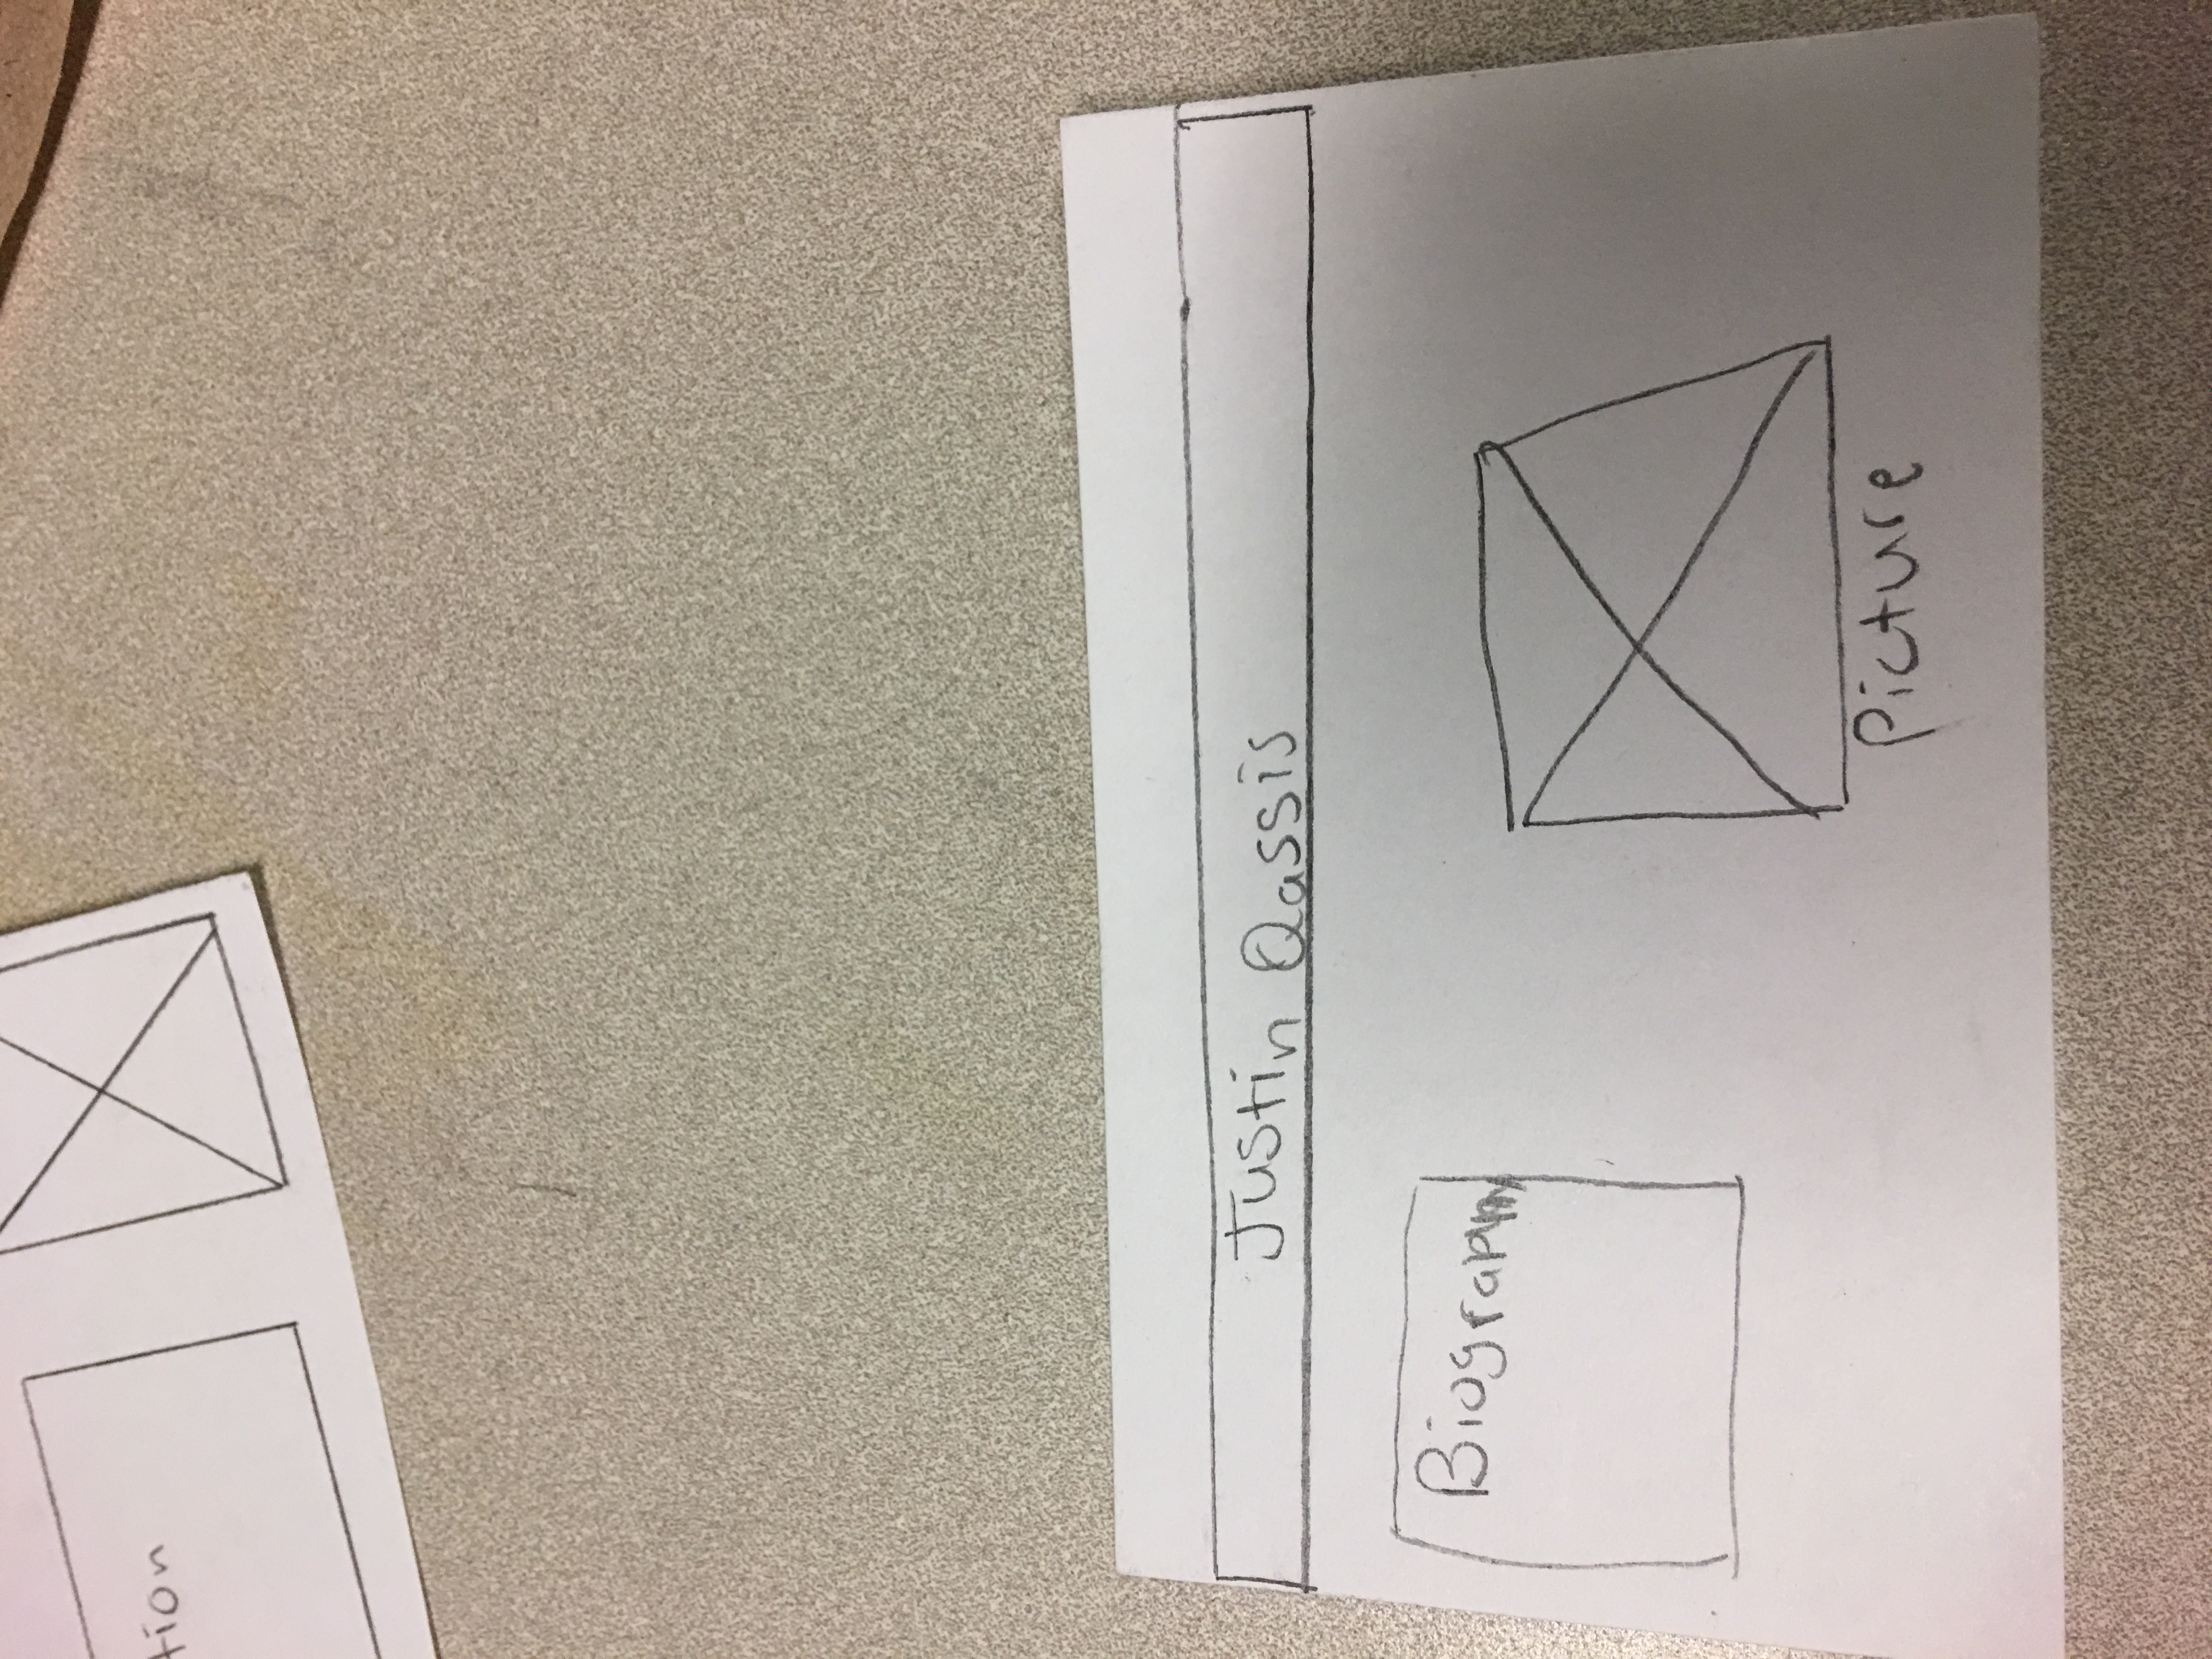 tion
Justin Qassis
Biography
Picture